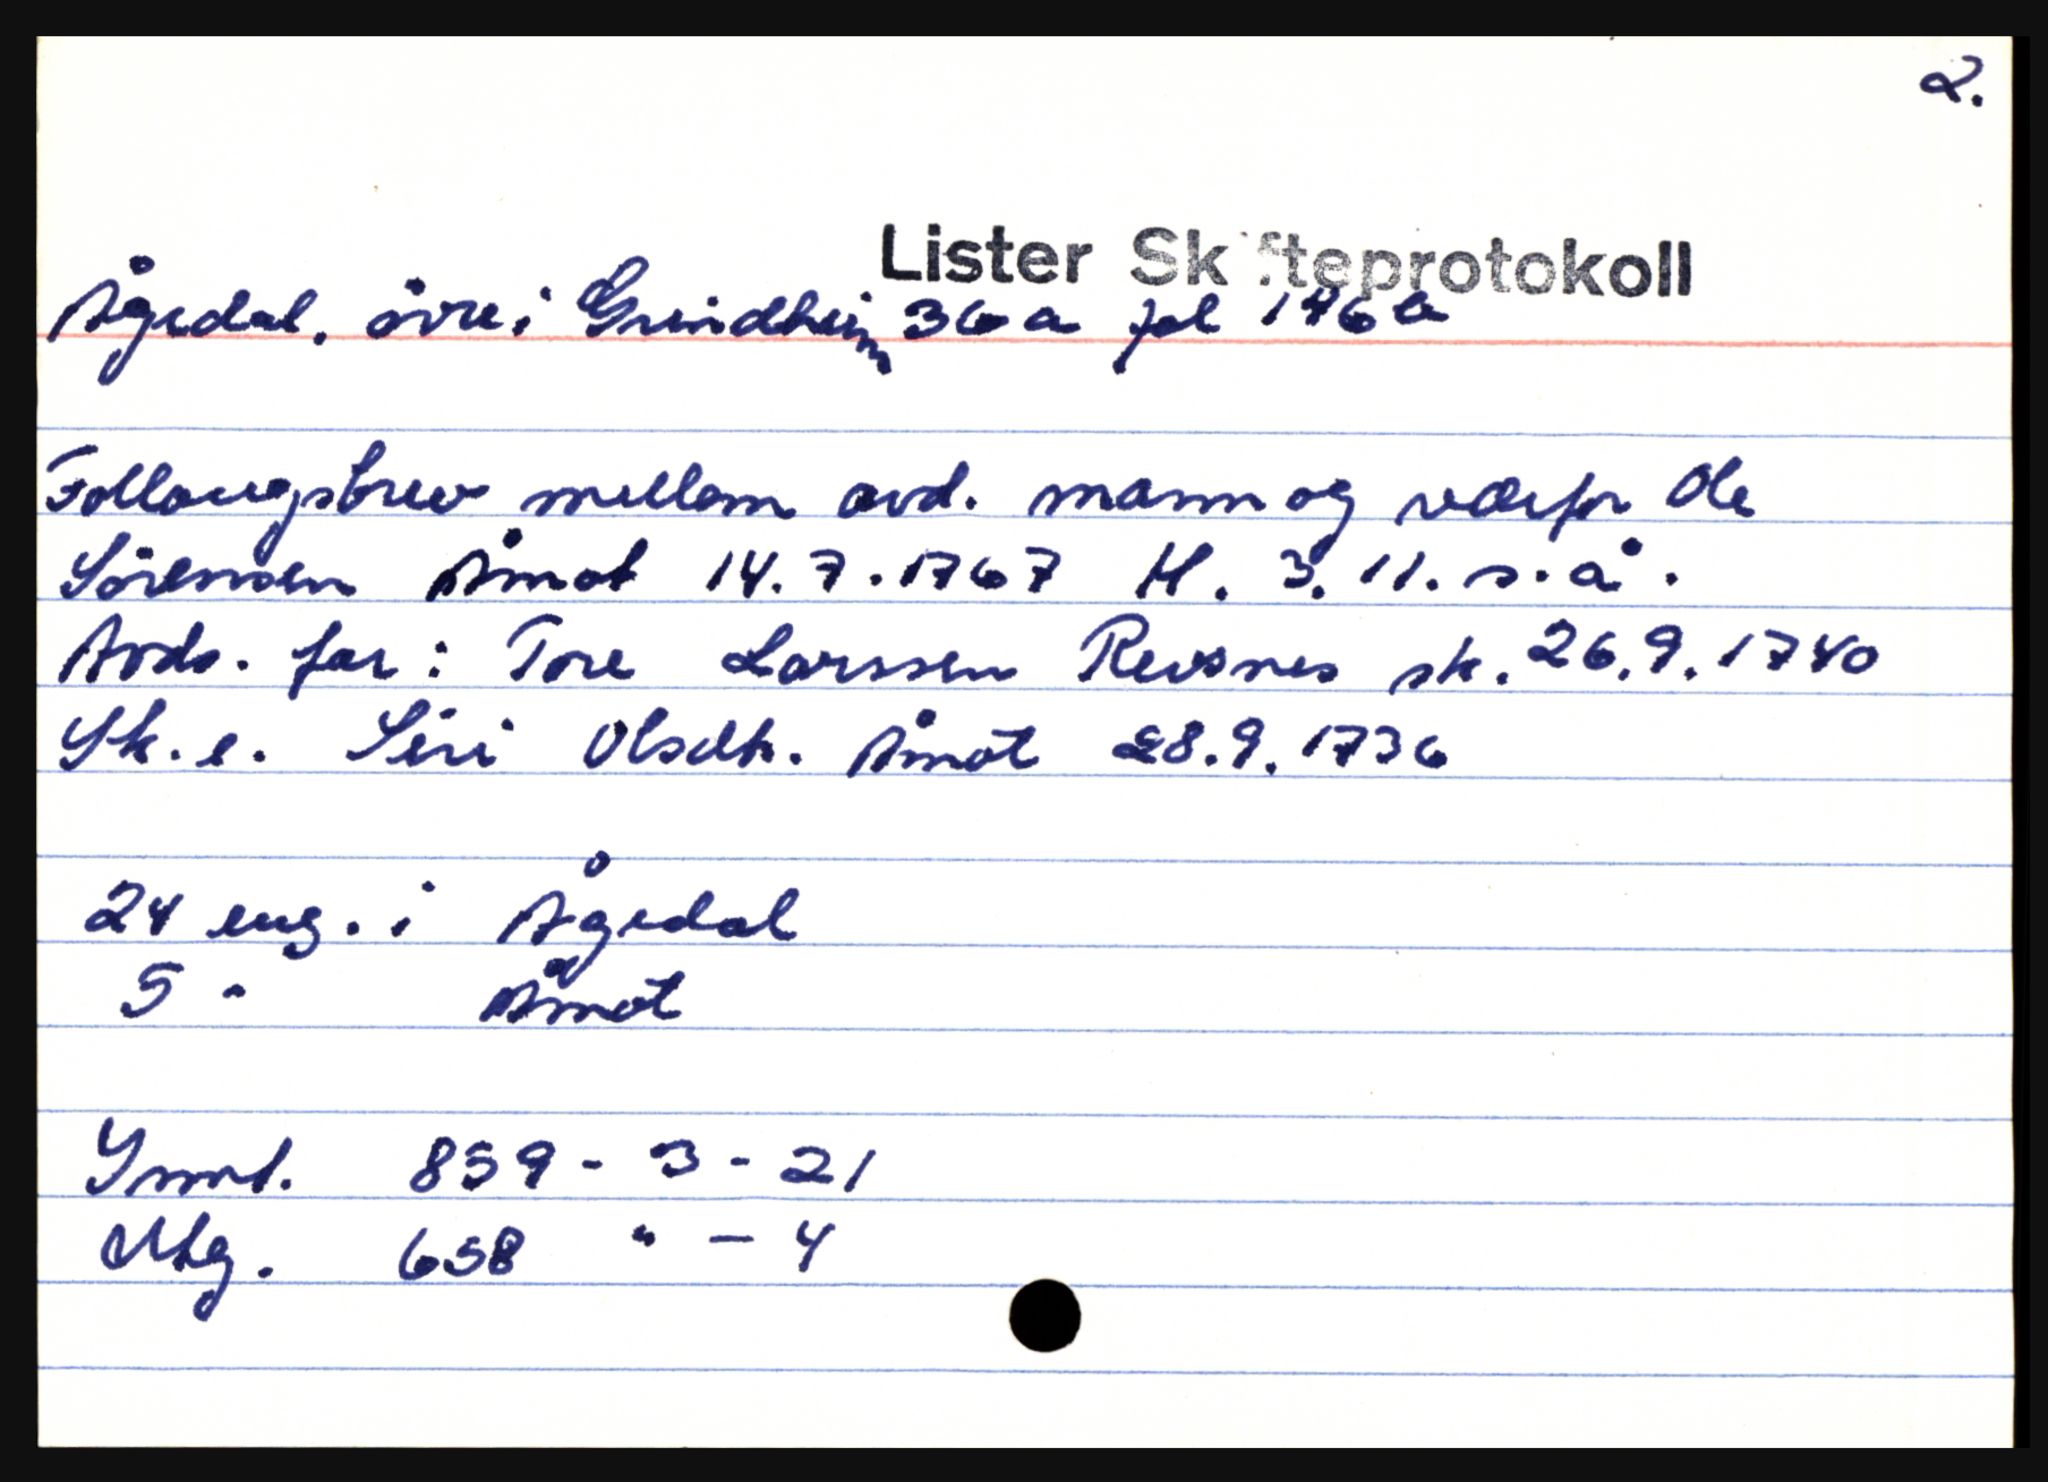 2.
Lister Skifteprotokoll
Ågedal, øvre i Grindheim 36 a fol 146 a
Follaugsbrev mellom avd. mann og værfar Ole
Sørensen Åmot 14.7.1767 H. 3.11. s.å.
Avds. far: Tore Larssen Reisnes sk. 26.9.1740
Sk. e. Siri Olsdtr. Åmot 28.9.1736
24 eng. i Ågedal
5 " Åmot
Innt. 859 - 3 - 21
Utg. 658 " - 4